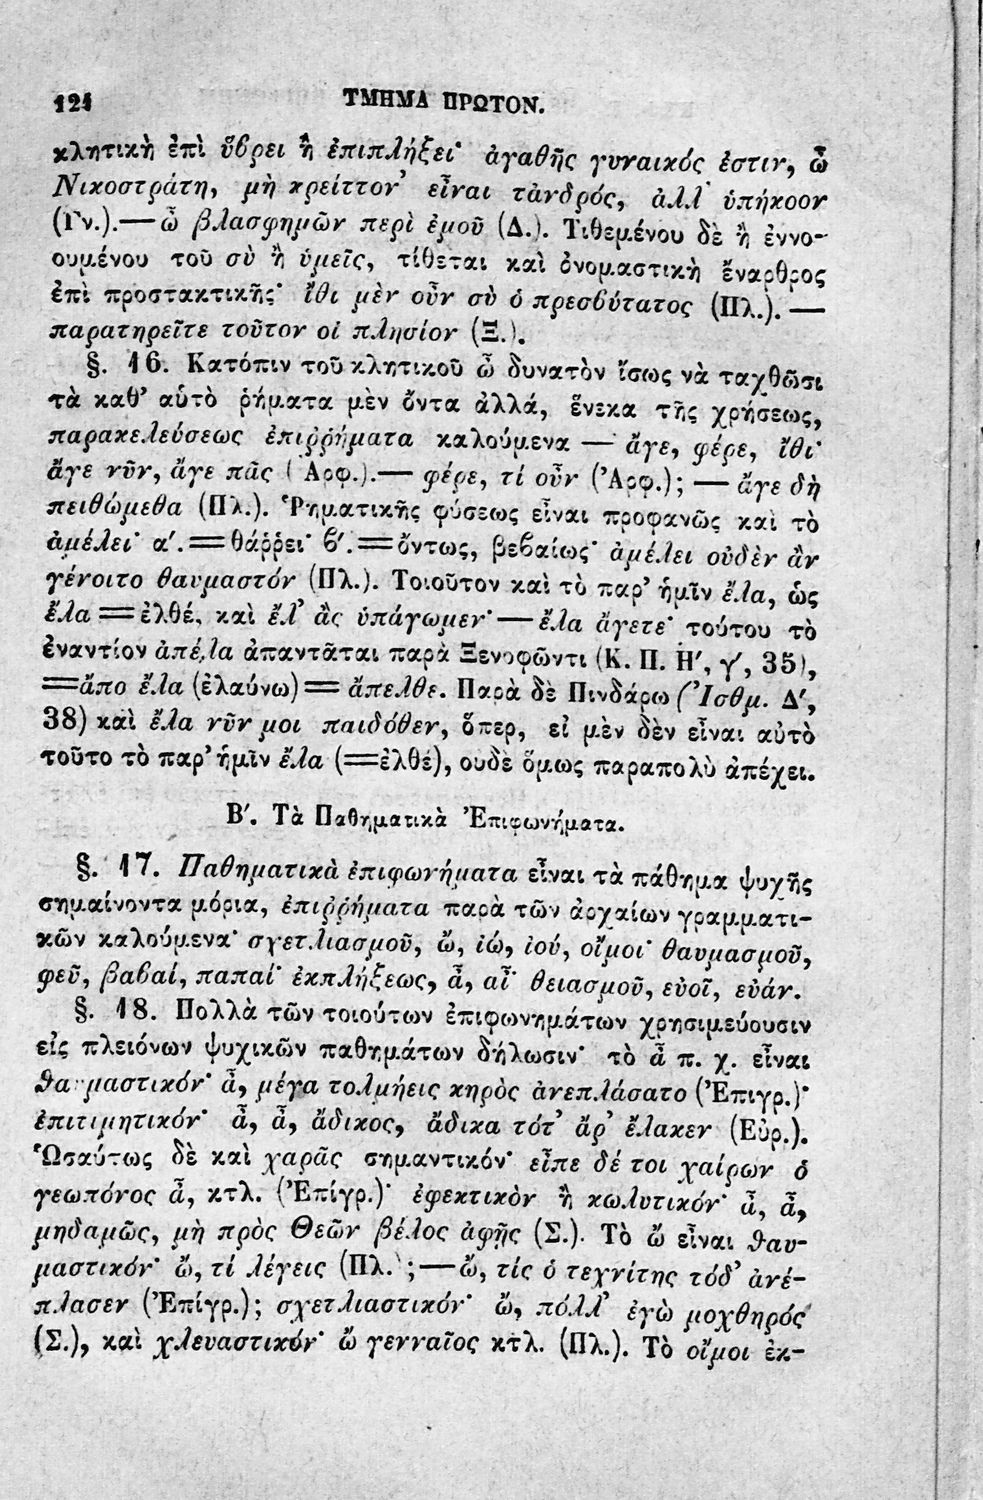 124 ΤΜΗΜΑ ΠΡΩΤΟΝ.
κλητικὴ ἐπὶ ὕβρει ἢ ἐπιπλήξει· ἀγαθῆς γυναικός ἐστιν, ὦ
Νικοστράτη, μὴ κρείττον' εἶναι τἀνδρός, ἀλλ' ὑπήκοον
(Γν.).—ὦ βλασφημῶν περὶ ἐμοῦ (Δ.). Τιθεμένου δὲ ἢ ἐννο-
ουμένου τοῦ σὺ ἢ ὑμεῖς, τίθεται καὶ ὀνομαστικὴ ἔναρθρος
ἐπὶ προστακτικῆς· ἴθι μὲν οὖν σὺ ὁ πρεσβύτατος (Πλ.).—
παρατηρεῖτε τοῦτον οἱ πλησίον (Ξ.).
§. 16. Κατόπιν τοῦ κλητικοῦ ὦ δυνατὸν ἴσως νὰ ταχθῶσι
τὰ καθ' αὑτὸ ῥήματα μὲν ὄντα ἀλλά, ἕνεκα τῆς χρήσεως,
παρακελεύσεως ἐπιῤῥήματα καλούμενα — ἄγε, φέρε, ἴθι·
ἄγε νῦν, ἄγε πᾶς (Ἀρφ.).— φέρε, τί οὖν (Ἀρφ.); — ἄγε δὴ
πειθώμεθα (Πλ.). Ῥηματικῆς φύσεως εἶναι προφανῶς καὶ τὸ
ἀμέλει· α'.=θάῤῥει· β'.=ὄντως, βεβαίως· ἀμέλει οὐδὲν ἂν
γένοιτο θαυμαστόν (Πλ.). Τοιοῦτον καὶ τὸ παρ' ἡμῖν ἔλα, ὡς
ἔλα=ἐλθέ, καὶ ἔλ' ἂς ὑπάγωμεν·—ἔλα ἄγετε· τούτου τὸ
ἐναντίον ἀπέλα ἀπαντᾶται παρὰ Ξενοφῶντι (Κ. Π. Η', γ', 35),
=ἄπο ἔλα (ἐλαύνω)= ἄπελθε. Παρὰ δὲ Πινδάρῳ (Ἰσθμ. Δ',
38) καὶ ἔλα νῦν μοι παιδόθεν, ὅπερ, εἰ μὲν δὲν εἶναι αὐτὸ
τοῦτο τὸ παρ' ἡμῖν ἔλα (=ἐλθέ), οὐδὲ ὅμως παραπολὺ ἀπέχει.
Β'. Τὰ Παθηματικὰ Ἐπιφωνήματα.
§. 17. Παθηματικὰ ἐπιφωνήματα εἶναι τὰ πάθημα ψυχῆς
σημαίνοντα μόρια, ἐπιῤῥήματα παρὰ τῶν ἀρχαίων γραμματι-
κῶν καλούμενα· σχετλιασμοῦ, ὤ, ἰώ, ἰού, οἴμοι· θαυμασμοῦ,
φεῦ, βαβαί, παπαί· ἐκπλήξεως, ἆ, αἶ· θειασμοῦ, εὐοῖ, εὐάν.
§. 18. Πολλὰ τῶν τοιούτων ἐπιφωνημάτων χρησιμεύουσιν
εἰς πλειόνων ψυχικῶν παθημάτων δήλωσιν· τὸ ἆ π. χ. εἶναι
θαυμαστικόν· ἆ, μέγα τολμήεις κηρὸς ἀνεπλάσατο (Ἐπιγρ.)·
ἐπιτιμητικόν· ἆ, ἆ, ἄδικος, ἄδικα τότ' ἄρ' ἔλακεν (Εὐρ.).
Ὡσαύτως δὲ καὶ χαρᾶς σημαντικόν· εἶπε δέ τοι χαίρων ὁ
γεωπόνος ἆ, κτλ. (Ἐπίγρ.)· ἐφεκτικὸν ἢ κωλυτικόν· ἆ, ἆ,
μηδαμῶς, μὴ πρὸς Θεῶν βέλος ἀφῇς (Σ.). Τὸ ὤ εἶναι θαυ-
μαστικόν· ὤ, τί λέγεις (Πλ.);—ὤ, τίς ὁ τεχνίτης τόδ' ἀνέ-
πλασεν (Ἐπίγρ.); σχετλιαστικόν· ὤ, πόλλ' ἐγὼ μοχθηρός
(Σ.), καὶ χλευαστικόν· ὤ γενναῖος κτλ. (Πλ.). Τὸ οἴμοι ἐκ-